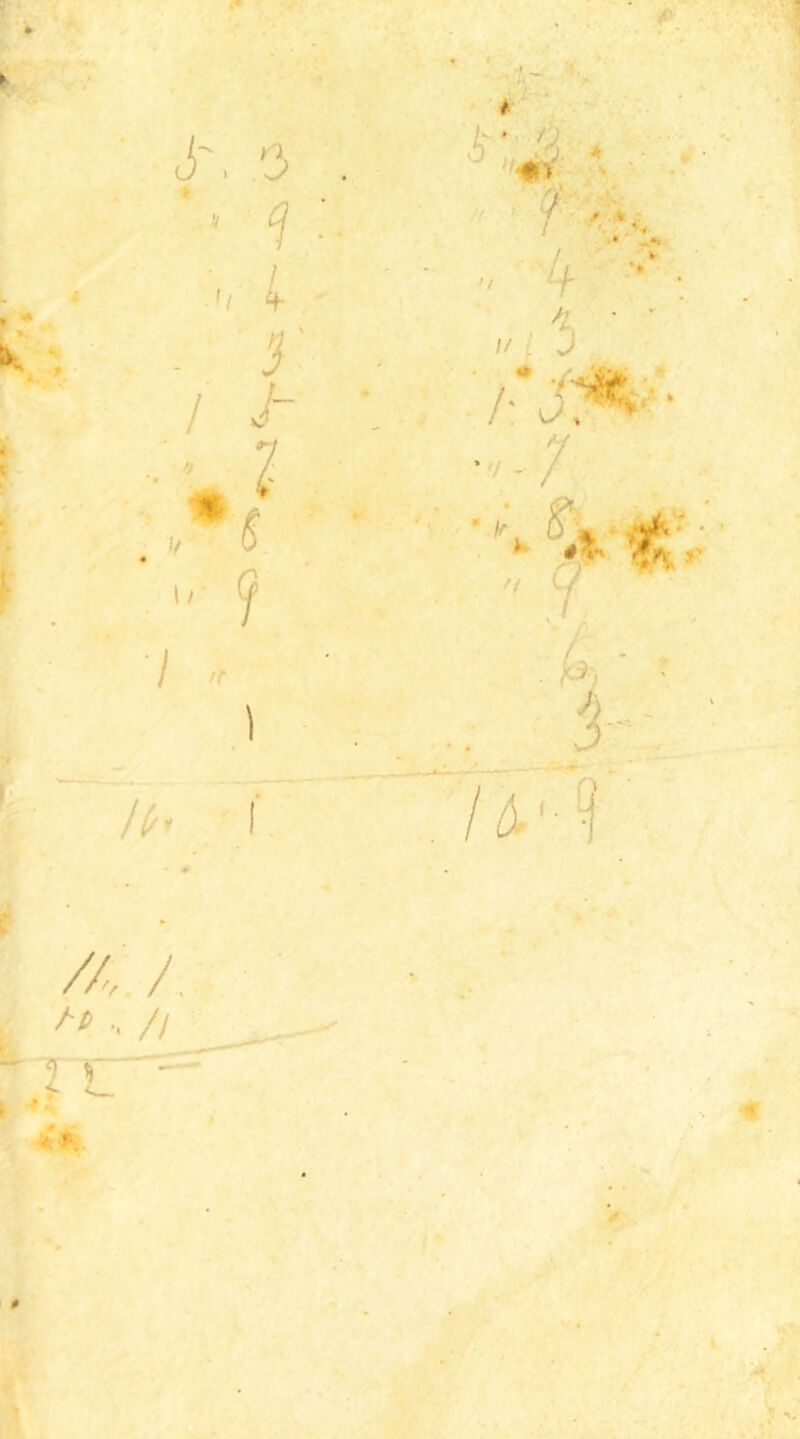 5, 3
" 9
" 4
3
1 5
" 7
" 8
" 9
1 "
1
10, 1
11,, 1
10 ,, 11
22
5, 3
" 9
" 4
" 3
1, 5
" 7
" 8
" 9
6
3
10, 9